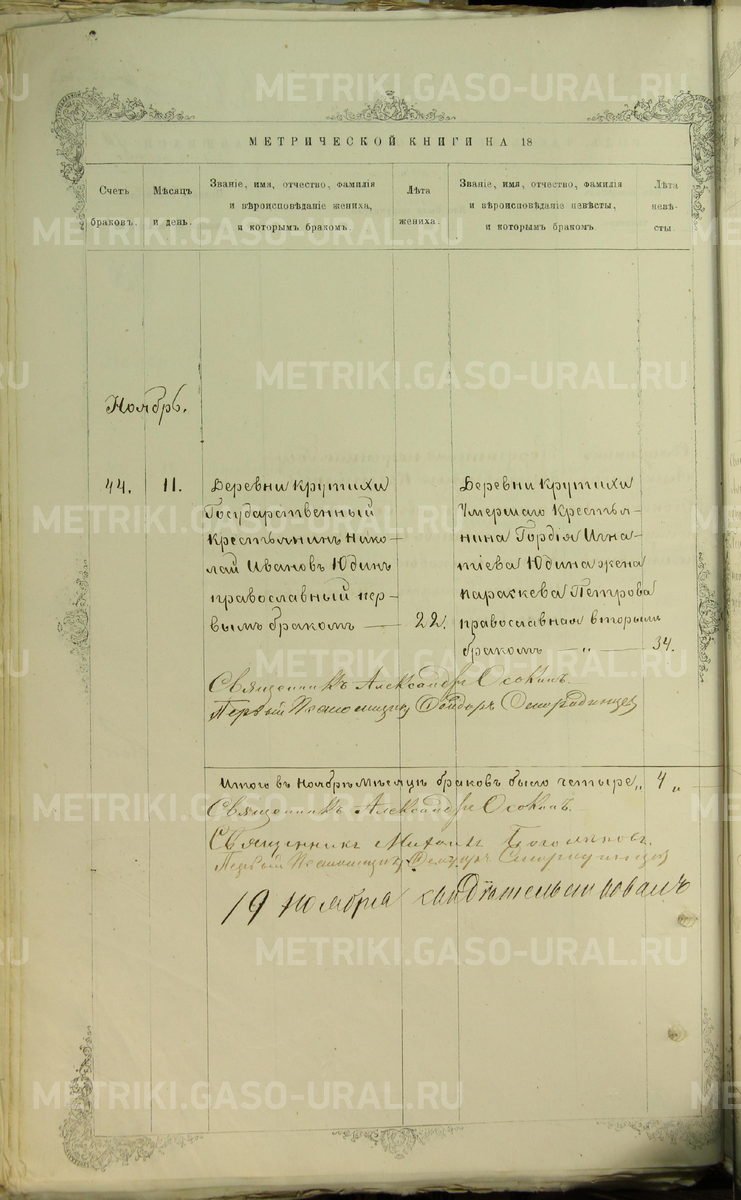 МЕТРИЧЕСКОЙ КНИГИ НА 18
Счетъ
браковъ.
Мѣсяцъ
и день.
Званіе, имя, отчество, фамилія
и вѣроисповѣданіе жениха,
и которымъ бракомъ.
Лѣта
жениха.
Званіе, имя, отчество, фамилія
и вѣроисповѣданіе невѣсты,
и которымъ бракомъ
Лѣта
невѣ-
сты.
Ноябрь.
44.
11.
Деревни Крутихи
Государственный
крестьянинъ Нико-
лай Ивановъ Юдинъ
православный пер-
вымъ бракомъ —
22.
Деревни Крутихи
Умершаго Крестья-
нина Гордія Игна-
тіева Юдина жена
Параскева Петрова
православная вторымъ
бракомъ — „ —
34.
Священникъ Александръ Осокинъ
Первый Псаломщикъ
Итого въ Ноябрѣ мѣсяцѣ браковъ было четыре „ 4 „
Священникъ Александръ Осокинъ.
Священникъ Михаилъ
Первый Псаломщикъ
19 ноября свидѣтельствовалъ
METRIKI.GASO-URAL.RU